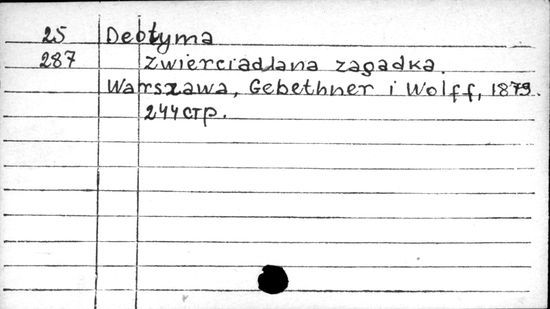 25 Deotyma
287 Zwierciadlana zagadka.
Warszawa, Gebethner i Wolff, 1879.
244 стр.